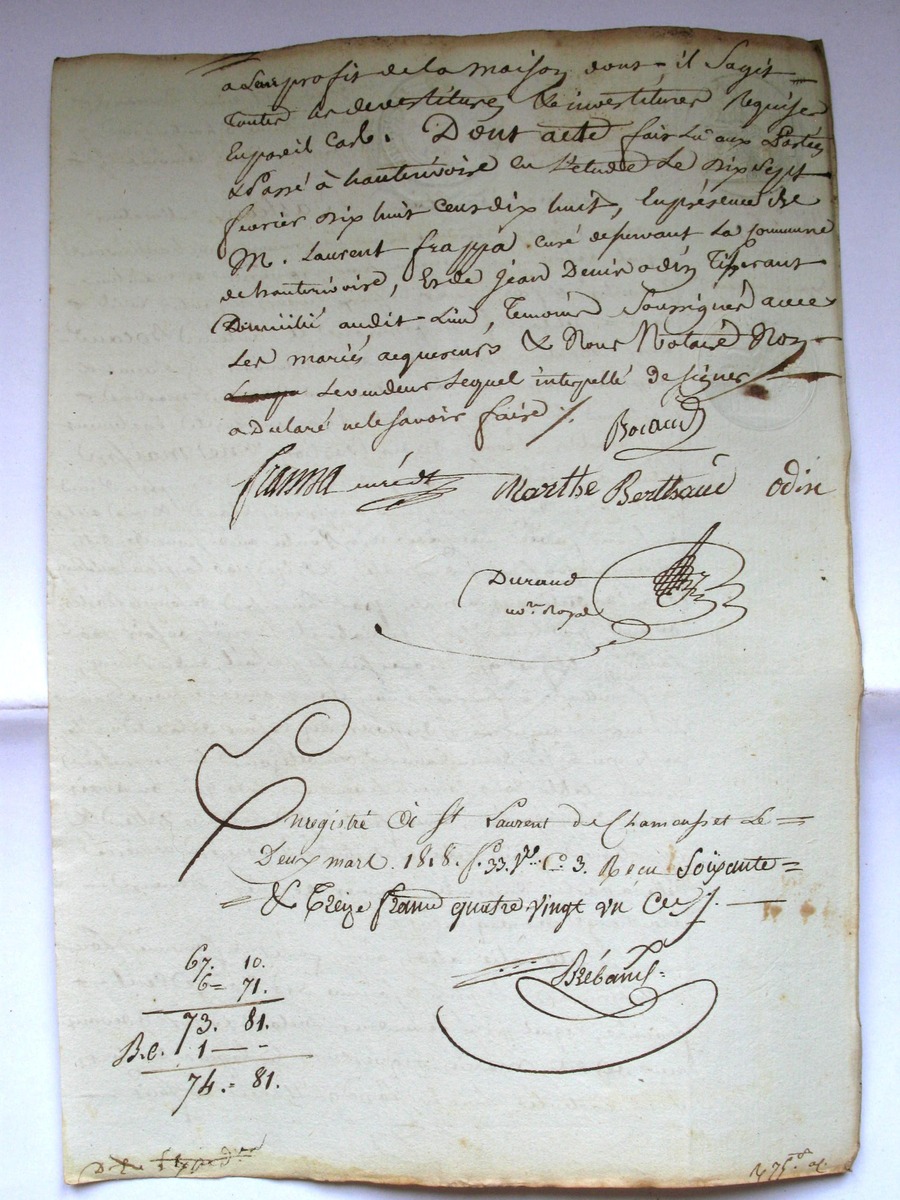 a leur profit de la maison dont il Sagit
toutes les devestitures & investitures requise
En pareil Cas. Dont acte fait Lu aux Parties
& Passé à hauterivoire En L'etude Le Dix Sept
fevrier Dix huit Cens dix huit, En présence de
M. Laurent frappa curé desservant La Commune
de hauterivoire, Et de Jean Denis odin Tisserant
Domicilié audit Lieu, Temoins Soussignés avec
Les mariés acquereurs & Nous Notaire Non
Le vendeur Lequel interpellé de Signer
a Declaré ne le Savoir faire ./.
frappa curé dt Marthe Berthaud odin
Durand
no.re Royal
Enregistré à St Laurent de Chamousset Le
Deux mars 1818. f.o 33. v.o C. 3. Reçu Soixante
& Treize francs quatre vingt un Ces./.
67. 10.
6 = 71.
73. 81.
1 —
74. = 81.